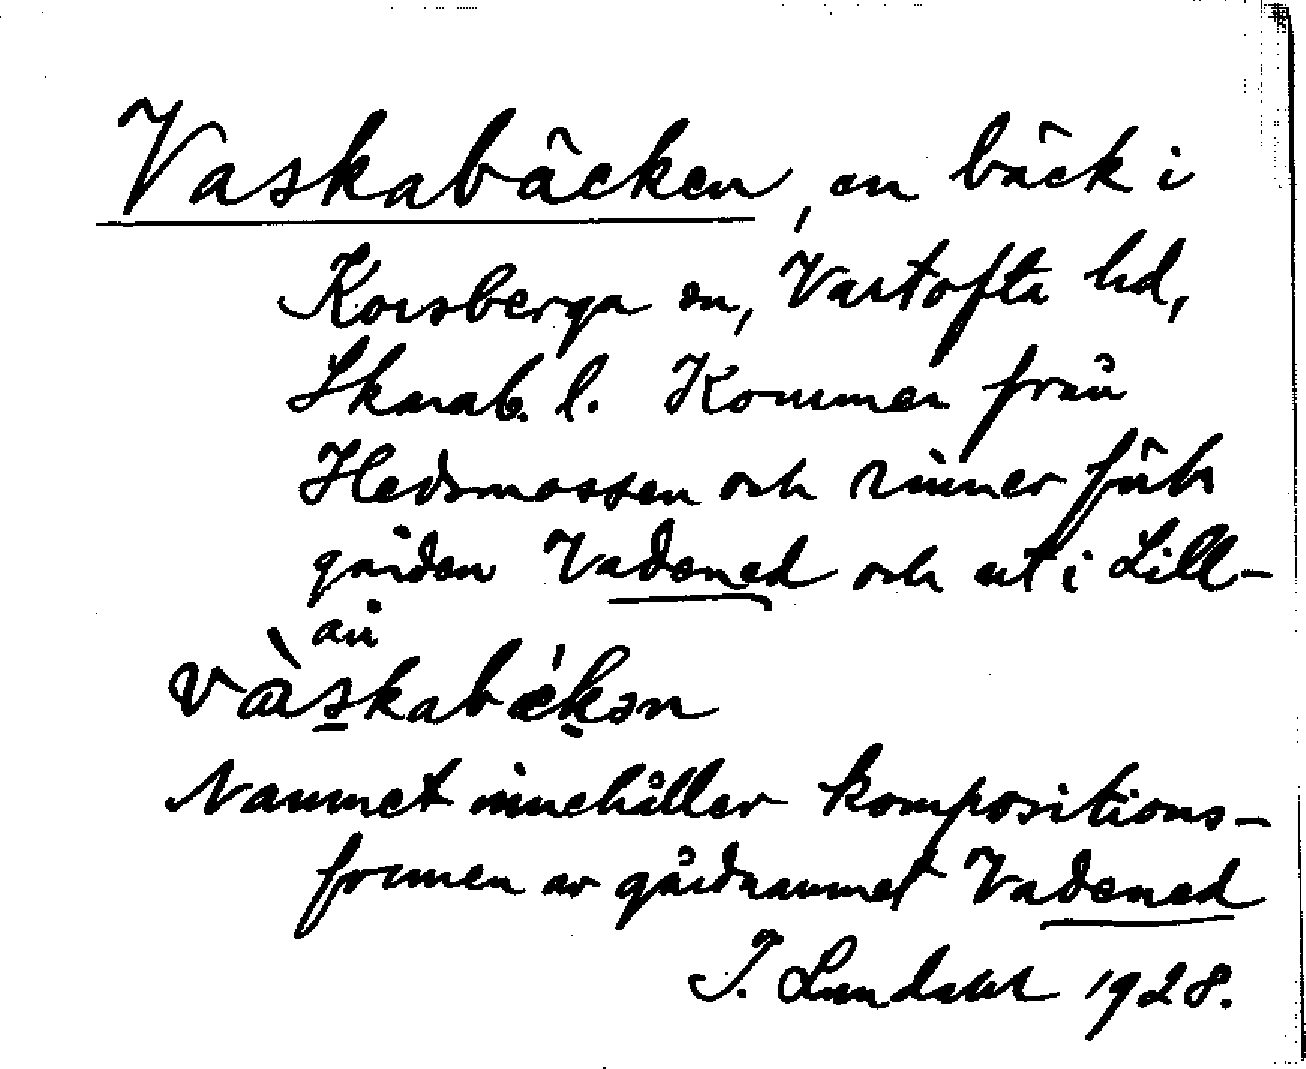 Vaskabäcken, en bäck i
Korsberga sn, Vartofta hd,
Skarab. l. Kommer från
Hedsmossen och rinner förbi
gården Vadsned och ut i Lill-
ån
Namnet innehåller kompositions-
formen av gårdnamnet Vadsned
I. Lundahl 1928.